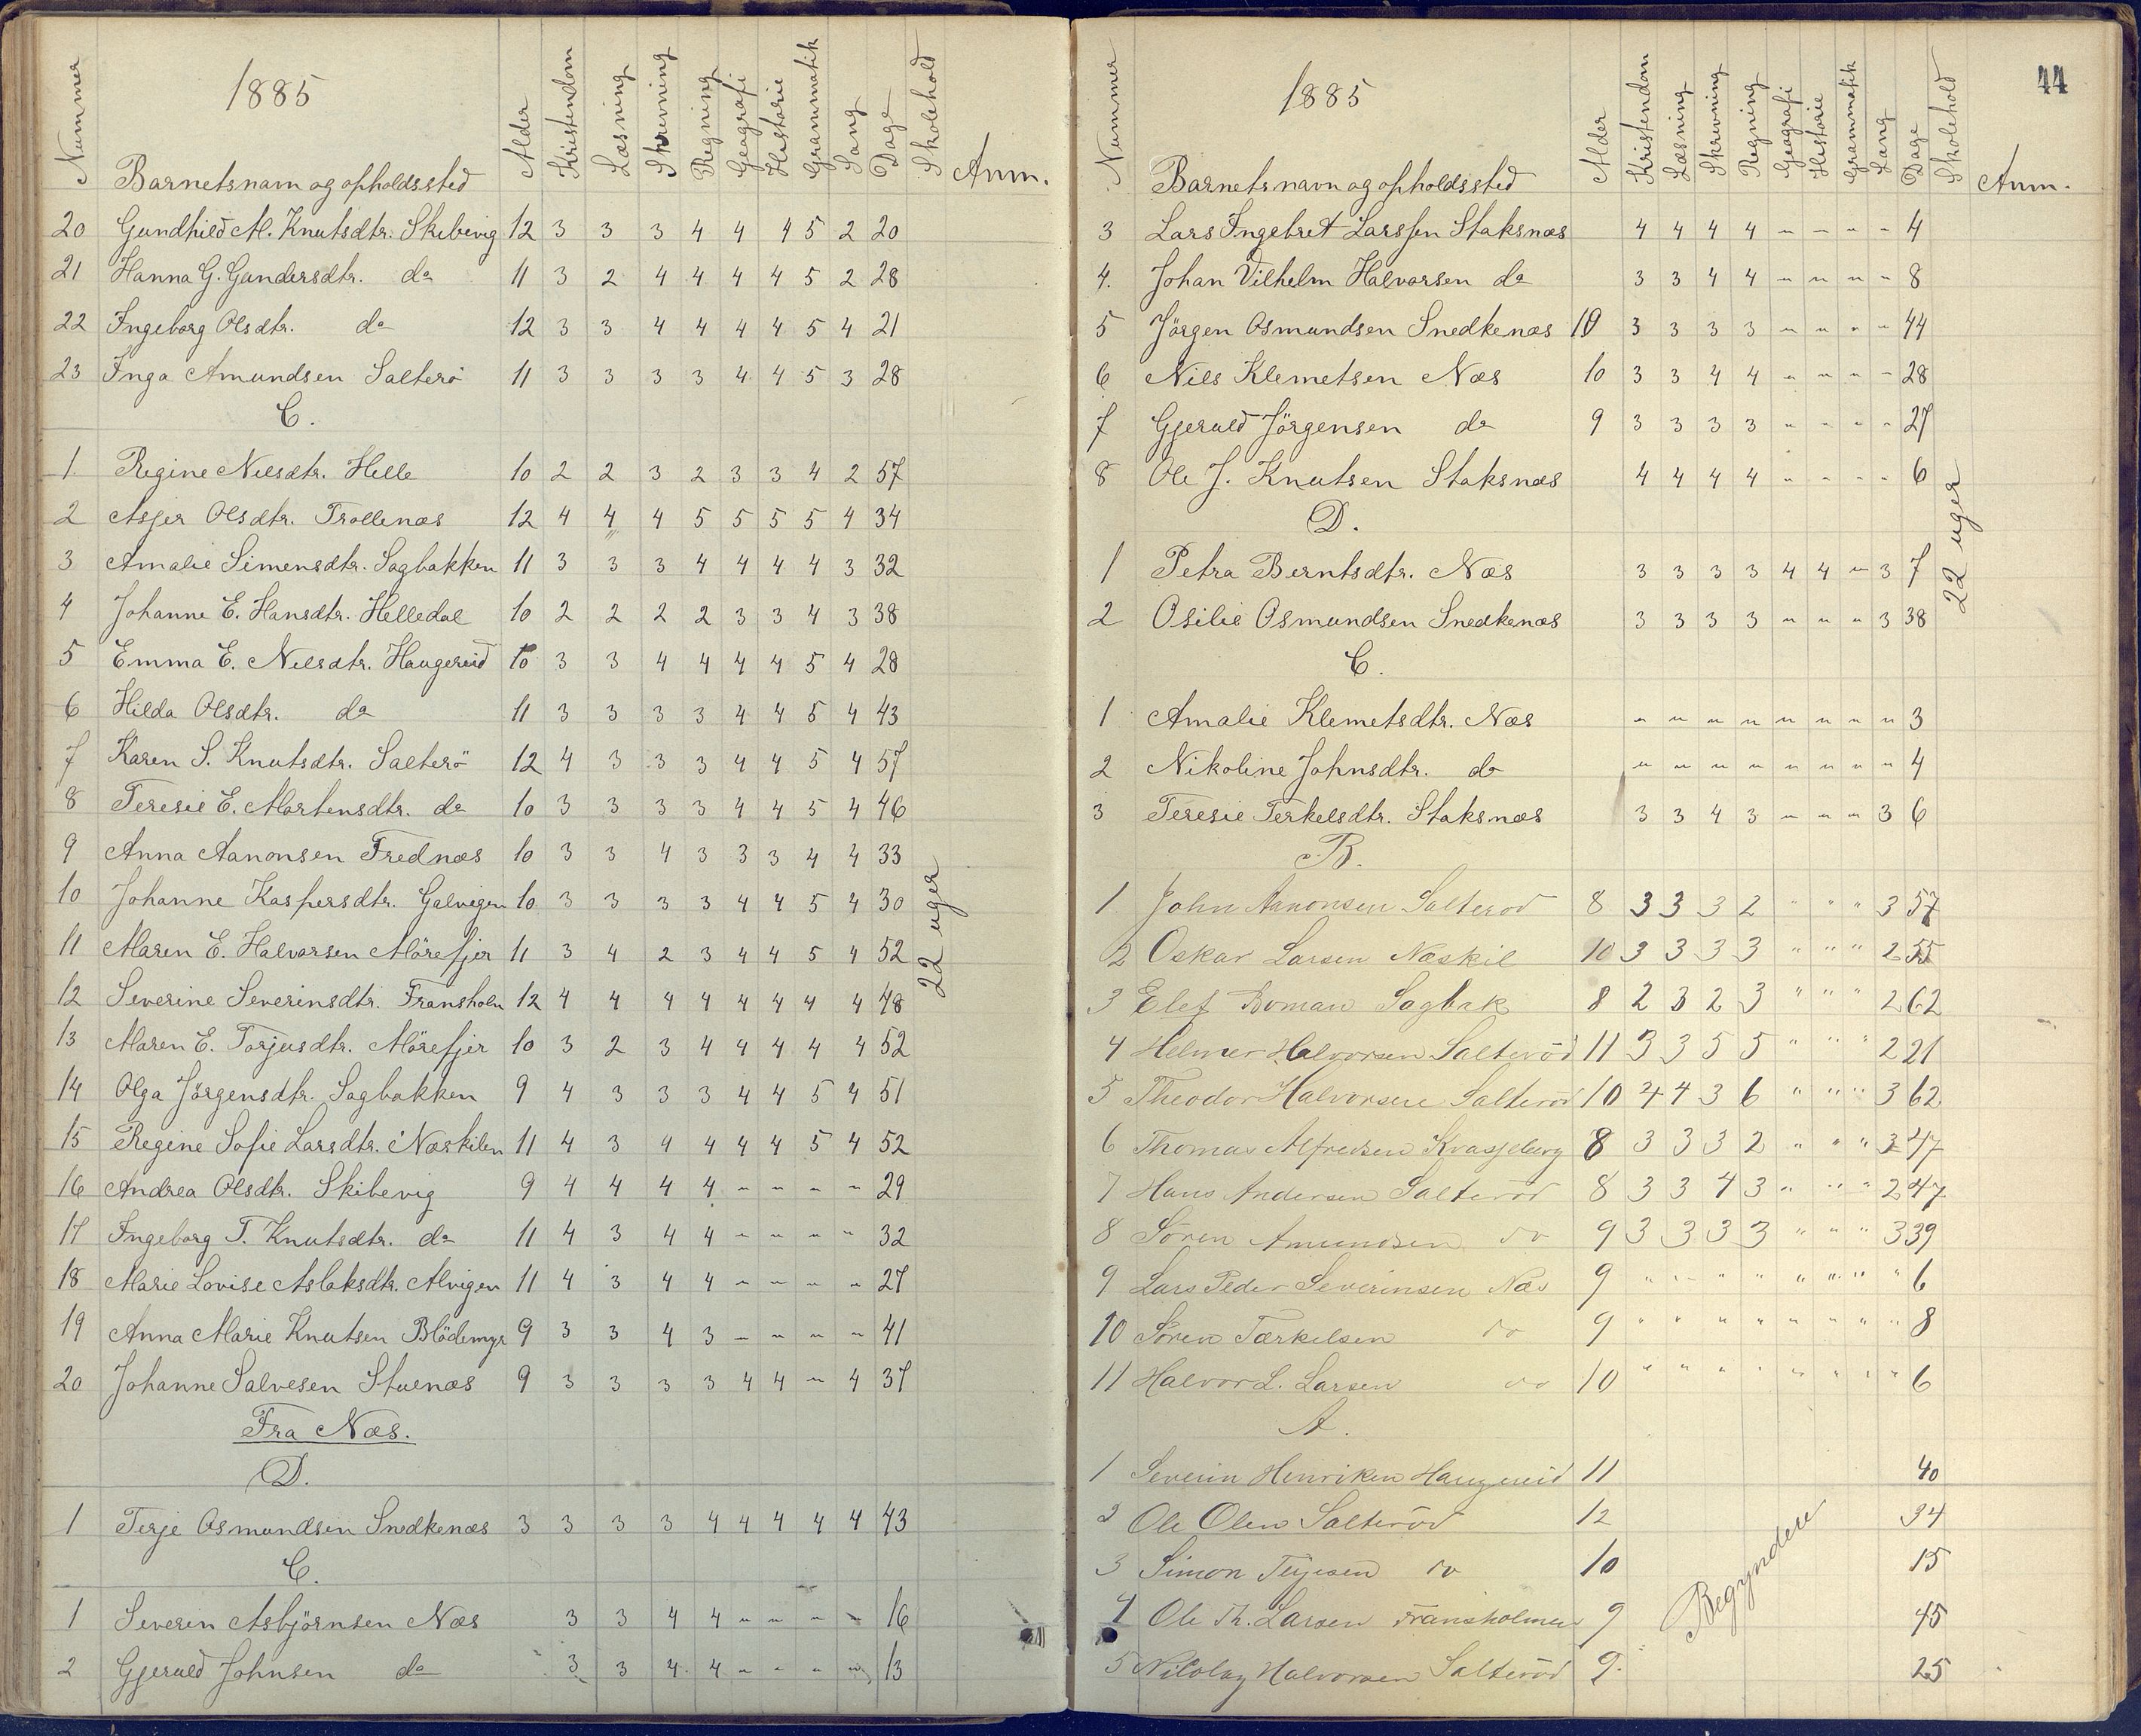 1885
Nummer Barnetsnavn og opholdssted Alder Kristendom Læsning Skrevning Regning Geografi Historie Grammatik Sang Dage Skolehold Anm.
20 Gundhild M. Knutsdtr. Skibevig 12 3 3 3 4 4 4 5 2 20
21 Hanna G. Gundersdtr. do 11 3 2 4 4 4 4 5 2 28
22 Ingeborg Olsdtr. do 12 3 3 4 4 4 4 5 4 21
23 Inga Amundsen Salterö 11 3 3 3 3 4 4 5 3 28
C.
1 Regine Nilsdtr. Helle 10 2 2 3 2 3 3 4 2 57
2 Asjer Olsdtr. Trollenæs 12 4 4 4 5 5 5 5 4 34
3 Amalie Simensdtr. Sagbakken 11 3 3 3 4 4 4 4 3 32
4 Johanne E. Hansdtr. Helledal 10 2 2 2 2 3 3 4 3 38
5 Emma E. Nilsdtr. Haugereid 10 3 3 4 4 4 4 5 4 28
6 Hilda Olsdtr. do 11 3 3 3 3 4 4 5 4 43
7 Karen S. Knutsdtr. Salterö 12 4 3 3 3 4 4 5 4 57
8 Teresie E. Mortensdtr. do 10 3 3 3 3 4 4 5 4 46
9 Anna Aanonsen Frednæs 10 3 3 4 3 3 3 4 4 33
10 Johanne Kaspersdtr. Galvigen 10 3 3 3 3 4 4 5 4 30
11 Maren E. Halvorsen Mörefjer 11 3 4 2 3 4 4 5 4 52
12 Severine Severinsdtr. Fransholm 12 4 4 4 4 4 4 4 4 48
13 Maren E. Torjusdtr. Mörefjer 10 3 2 3 4 4 4 4 4 52
14 Olga Jörgensdtr. Sagbakken 9 4 3 3 3 4 4 5 4 51
15 Regine Sofie Larsdtr. Næskilen 11 4 3 4 4 4 4 5 4 52
16 Andrea Olsdtr. Skibevig 9 4 4 4 4 " " " " 29
17 Ingeborg T. Knutsdtr. do 11 4 3 4 4 " " " " 32
18 Marie Lovise Aslaksdtr. Alvigen 11 4 3 4 4 " " " " 27
19 Anna Marie Knutsen Blödemyr 9 3 3 4 3 " " " " 41
20 Johanne Salvesen Stuenæs 9 3 3 3 3 4 4 " 4 37
22 uger
Fra Næs.
D.
1 Terje Osmundsen Snedkenæs 3 3 3 3 4 4 4 4 4 43
C.
1 Severin Asbjörnsen Næs 3 3 4 4 " " " " 16
2 Gjeruld Johnsen do 3 3 4 4 " " " " 13
44
1885
Nummer Barnetsnavn og opholdssted Alder Kristendom Læsning Skrevning Regning Geografi Historie Grammatik Sang Dage Skolehold Anm.
3 Lars Ingebret Larssen Staksnæs 4 4 4 4 " " " " 4
4. Johan Vilhelm Halvorsen do 3 3 4 4 " " " " 8
5 Jörgen Osmundsen Snedkenæs 10 3 3 3 3 " " " " 44
6 Nils Klemetsen Næs 10 3 3 4 4 " " " " 28
7 Gjeruld Jörgensen do 9 3 3 3 3 " " " " 27
8 Ole J. Knutsen Staksnæs 4 4 4 4 " " " " 6
D.
1 Petra Berntsdtr. Næs 3 3 3 3 4 4 " 3 7
2 Osilie Osmundsen Snedkenæs 3 3 3 3 " " " 3 38
22 uger
C.
1 Amalie Klemetsdtr. Næs " " " " " " " " 3
2 Nikoline Johnsdtr. do " " " " " " " " 4
3 Teresie Terkelsdtr. Staksnæs 3 3 4 3 " " " 3 6
B.
1 John Aanonsen Salteröd 8 3 3 3 2 " " " 3 57
2 Oskar Larsen Næskil 10 3 3 3 3 " " " 2 55
3 Elef Boman Sagbak 8 2 3 2 3 " " " 2 62
4 Helmer Halvorsen Salteröd 11 3 3 5 5 " " " 2 21
5 Theodor Halvorsen Salteröd 10 4 4 3 6 " " " 3 62
6 Thomas Alfredsen Kvasjeberg 8 3 3 3 2 " " " 3 47
7 Hans Andersen Salteröd 8 3 3 4 3 " " " 2 47
8 Sören Amundsen do 9 3 3 3 3 " " " 3 39
9 Lars Peder Severinsen Næs 9 " " " " " " " " 6
10 Sören Tærkelsen do 9 " " " " " " " " 8
11 Halvor L. Larsen do 10 " " " " " " " " 6
A.
1 Severin Henriksen Haugereid 11 40
2 Ole Olsen Salteröd 12 34
3 Simon Terjesen do 10 15
4 Ole Th. Larsen Fransholmen 9 45
5 Nikolay Halvorsen Salteröd 9. 25
Begyndere